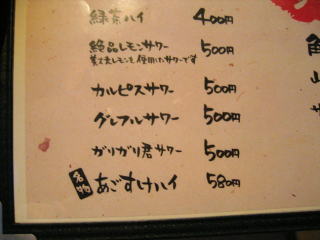 緑茶ハイ 400円
絶品レモンサワー 500円
レモンを使用したサワーです
カルピスサワー 500円
グレフルサワー 500円
ガリガリ君サワー 500円
名物 あごすけハイ 580円
角
山